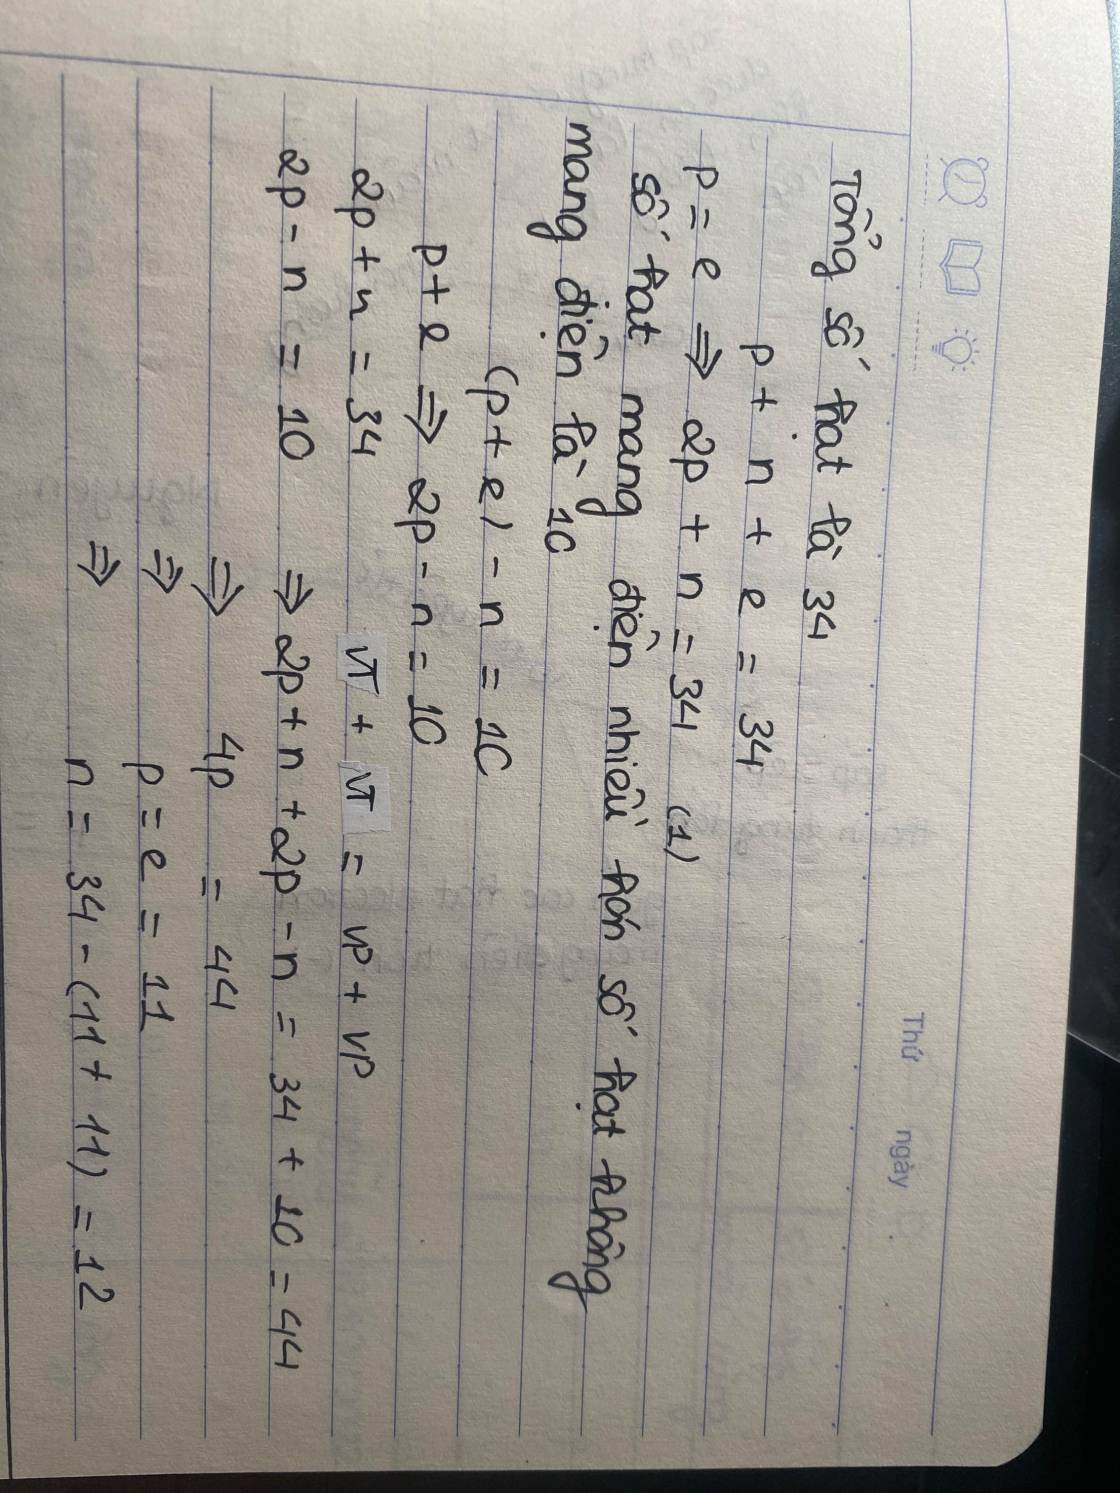 Thứ ngày
Tổng số hạt là 34
p + n + e = 34
p = e ⇒ 2p + n = 34 (1)
số hạt mang điện nhiều hơn số hạt không
mang điện là 10
(p + e) - n = 10
p + e ⇒ 2p - n = 10
2p + n = 34 VT + VT = VP + VP
2p - n = 10 ⇒ 2p + n + 2p - n = 34 + 10 = 44
⇒ 4p = 44
⇒ p = e = 11
⇒ n = 34 - (11 + 11) = 12